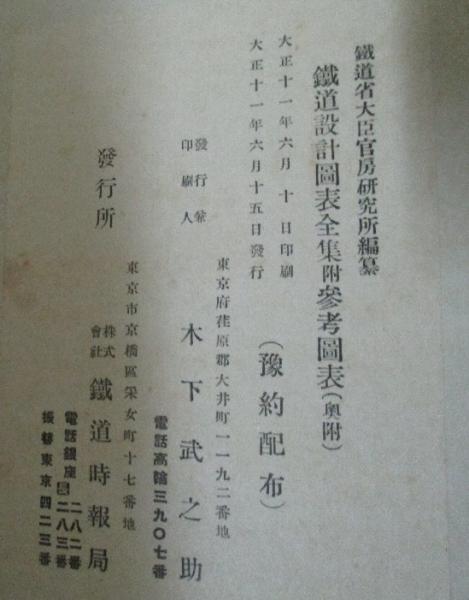 鐵道省大臣官房硏究所編纂
鐵道設計圖表全集附參考圖表(奧附)
大正十一年六月十日印刷
大正十一年六月十五日發行
(豫約配布)
發行兼
印刷人
東京府荏原郡大井町一一九二番地
木下武之助
電話高輪三九〇七番
發行所
東京市京橋區采女町十七番地
株式
會社
鐵道時報局
電話銀座二八二番
二八三番
振替東京四二三番